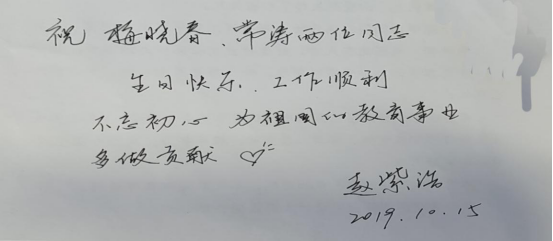 祝 梅晓春、常涛两位同志
生日快乐、工作顺利
不忘初心 为祖国的教育事业
多做贡献
赵紫浩
2019.10.15